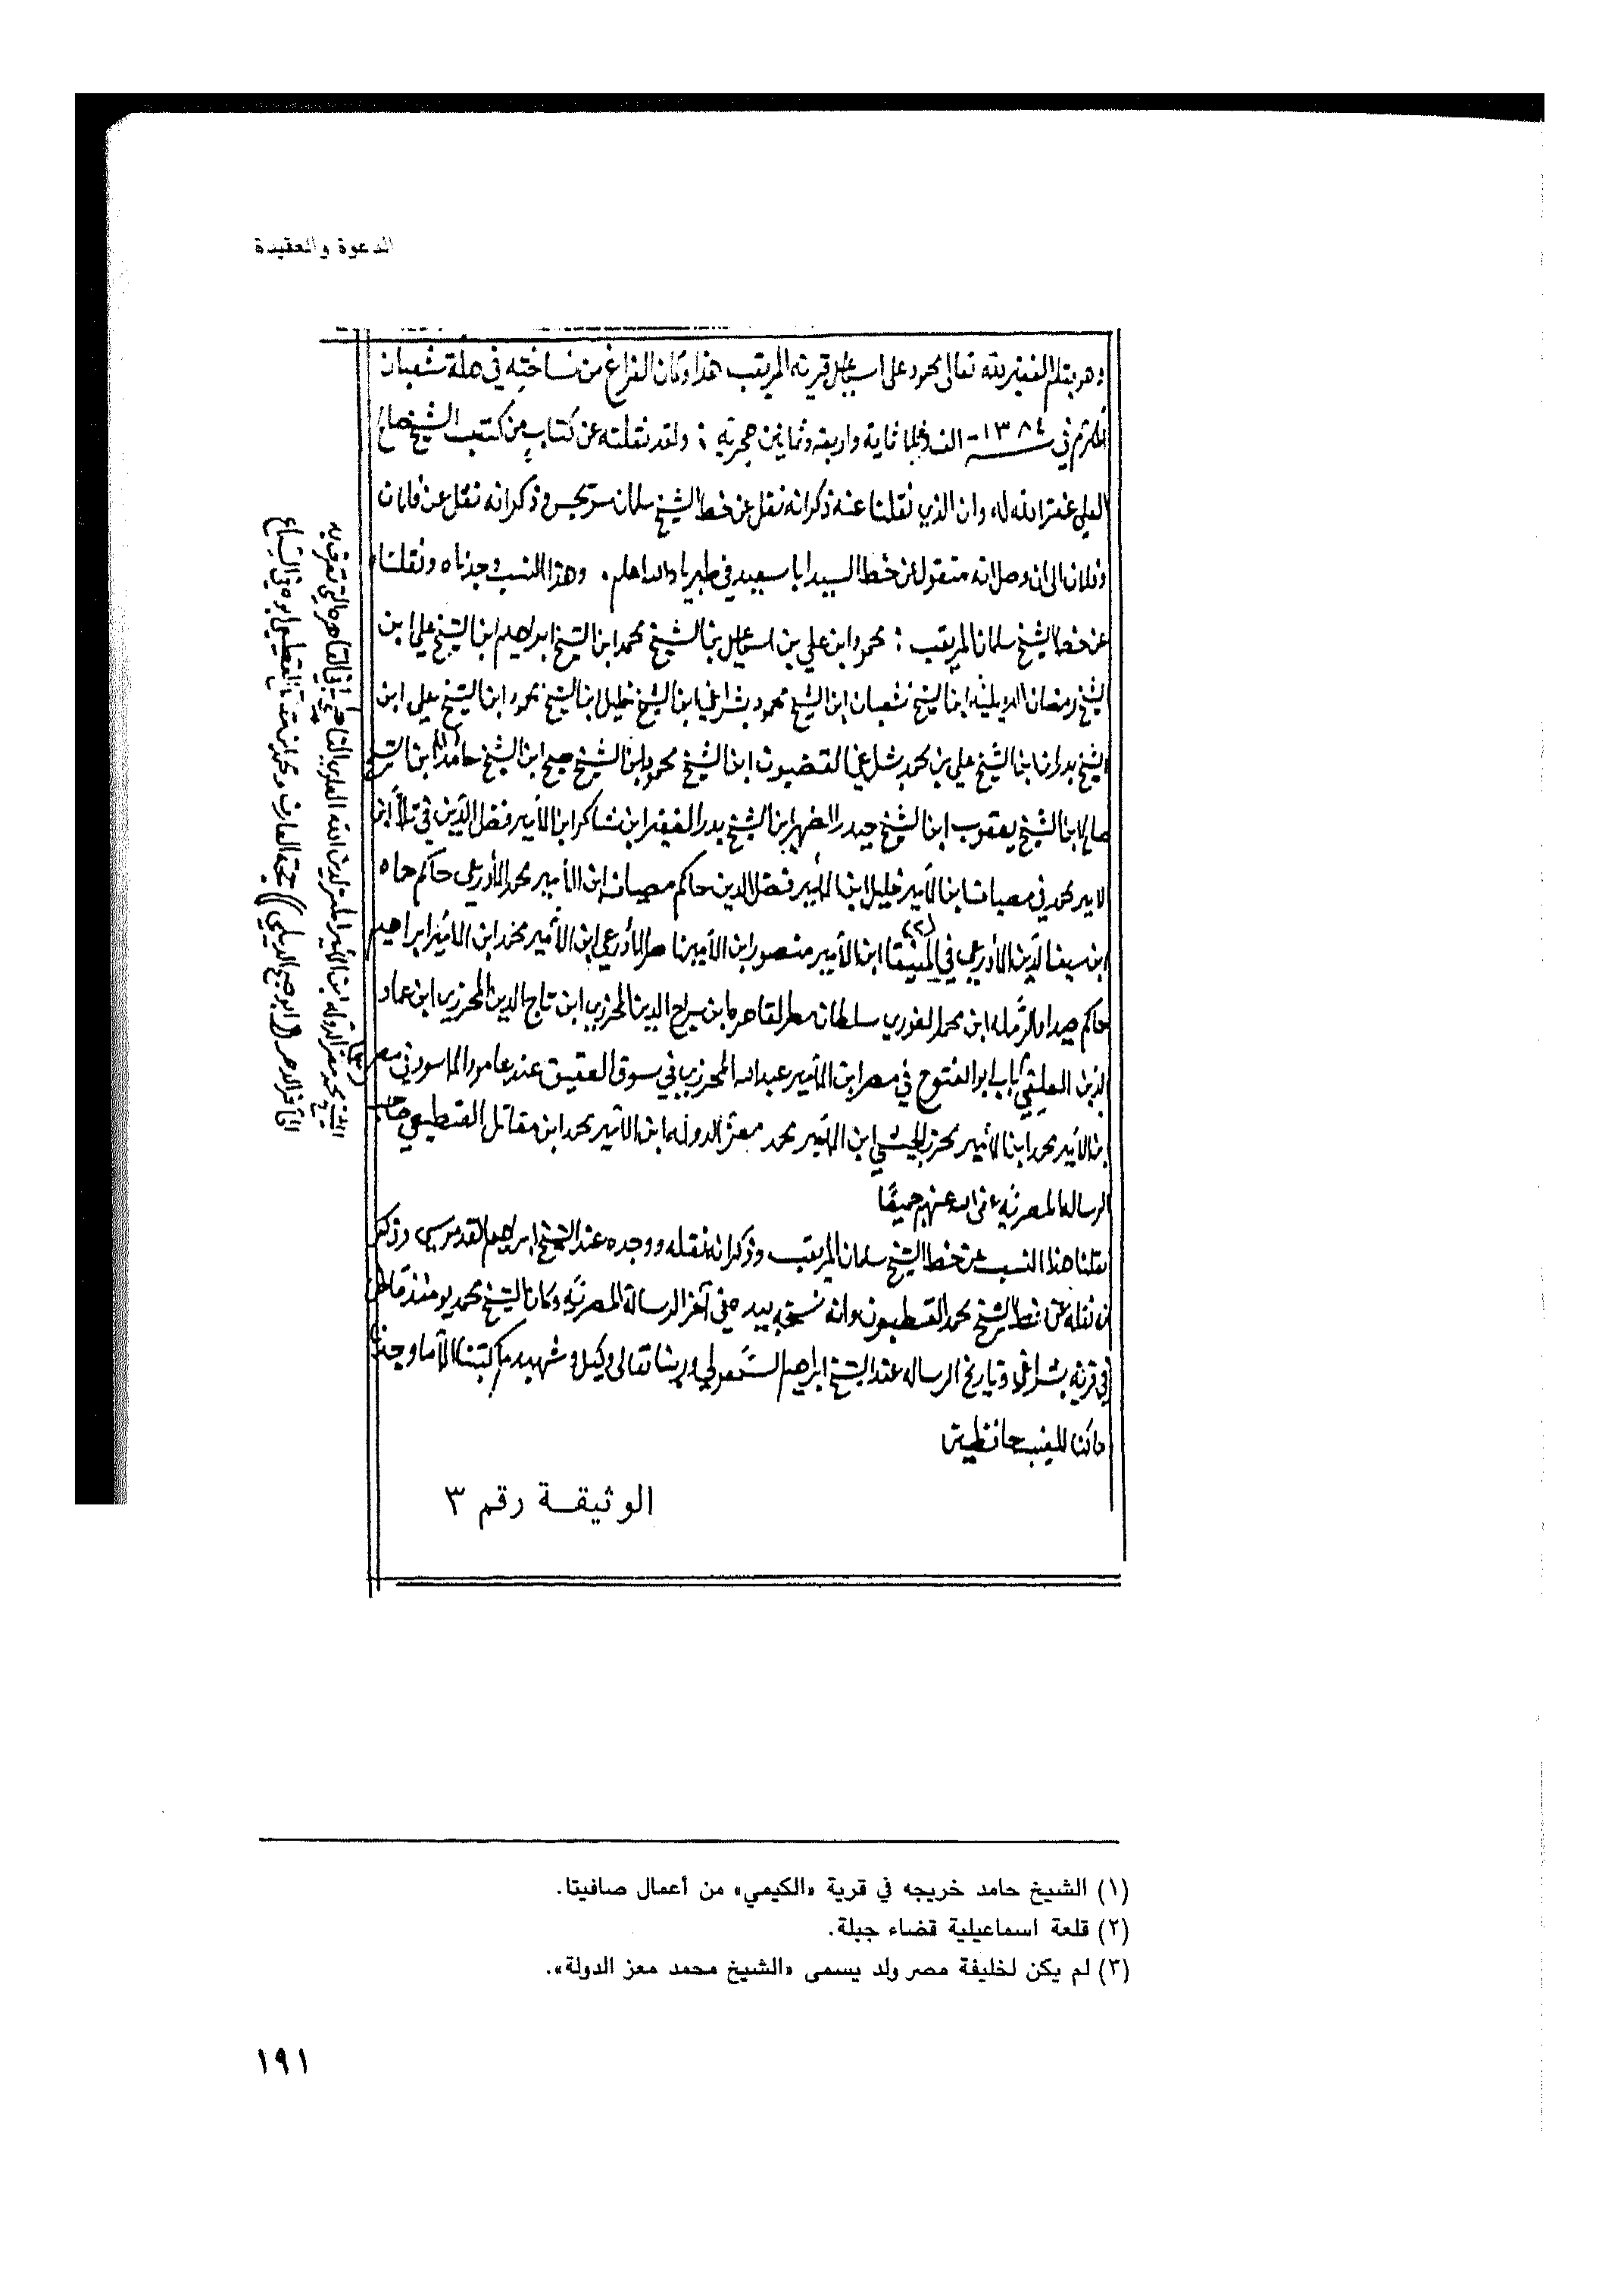 الدعوة والعقيدة
وهو بقلم الفقير لله تعالى محمود علي اسماعيل قرية المريقب هذا وكان الفراغ من نساخته في هلة شعبان
المكرم في ١٣٨٤ - الف وثلاثماية واربعة وثمانين هجرية : ولقد نقلته عن كتاب من كتب الشيخ صالح
العلي غفر الله له وان الذي نقلنا عنه ذكر انه نقل عن خط الشيخ سلمان وذكر انه نقل عن فلان
وفلان الى ان وصل انه منقول عن خط السيد ابا سعيد في طبريا والله اعلم . وهذا النسب وجدناه ونقلناه
عن خط الشيخ سلمان المريقب : محمود ابن علي بن اسماعيل بن الشيخ محمد ابن الشيخ ابراهيم ابن الشيخ علي ابن
الشيخ رمضان ابن الشيخ شعبان ابن الشيخ محمود بشراغي ابن الشيخ خليل ابن الشيخ محمود ابن الشيخ علي ابن
الشيخ بدران ابن الشيخ علي بن محمد ابن الشيخ محمود ابن الشيخ صبح ابن الشيخ حامد (١) ابن الشيخ
صالح ابن الشيخ يعقوب ابن الشيخ حيدر الضهر ابن الشيخ بدر الغفير ابن شاكر ابن الأمير فضل الدين في تلا ابن
الامير محمد في مصياف ابن الأمير خليل ابن الأمير فضل الدين حاكم مصياف ابن الأمير محمد الأدرعي حاكم حماه
ابن سيف الدين الأدرعي في المنيقا (٢) ابن الأمير منصور ابن الأمير ناصر الأدرعي ابن الأمير محمد ابن الأمير ابراهيم
حاكم صيدا والرمله ابن محمد الغوري سلطان مصر القاهره ابن سراج الدين المحرزي ابن تاج الدين المحرزي ابن عماد
الدين باب ابو الفتوح في مصر ابن الأمير عبدالله المحرزي في سوق العقيق عند عامود الماسور في مصر
بن الأمير محمد ابن الأمير محرز الجيشي ابن الأمير محمد معز الدوله (٣) ابن الأمير محمد ابن مقاتل القطيعي صاحب
الرساله المصريه عفى الله عنهم جميعًا
نقلنا هذا النسب عن خط الشيخ سلمان المريقب وذكر انه نقله ووجده عند الشيخ ابراهيم القدموسي وذكر
ان نقله عن خط الشيخ محمد وانه نسخه بيده في آخر الرسالة المصريه وكان الشيخ محمد يومئذ قاطن
في قرية بشراغي وتاريخ الرساله عند الشيخ ابراهيم وربنا تعالى وكيل وشهيد ما كتبنا الا ما وجدنا
وما كنا للغيب حافظين
الوثيقة رقم ٣
الشيخ محمد معز الدوله ابن الأمير المعز لدين الله العلوي الفاطمي في القاهره التي تعرف به
(١) الشيخ حامد خريجه في قرية «الكيمي» من أعمال صافيتا.
(٢) قلعة اسماعيلية قضاء جبلة.
(٣) لم يكن لخليفة مصر ولد يسمى «الشيخ محمد معز الدولة».
١٩١